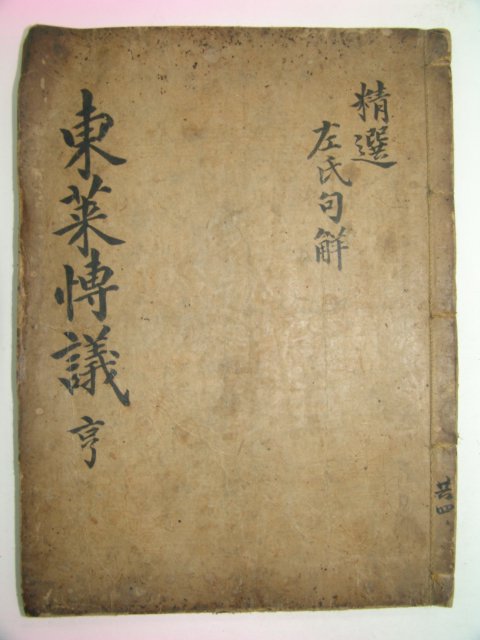 精選
左氏句觧
東萊愽議 亨
共四